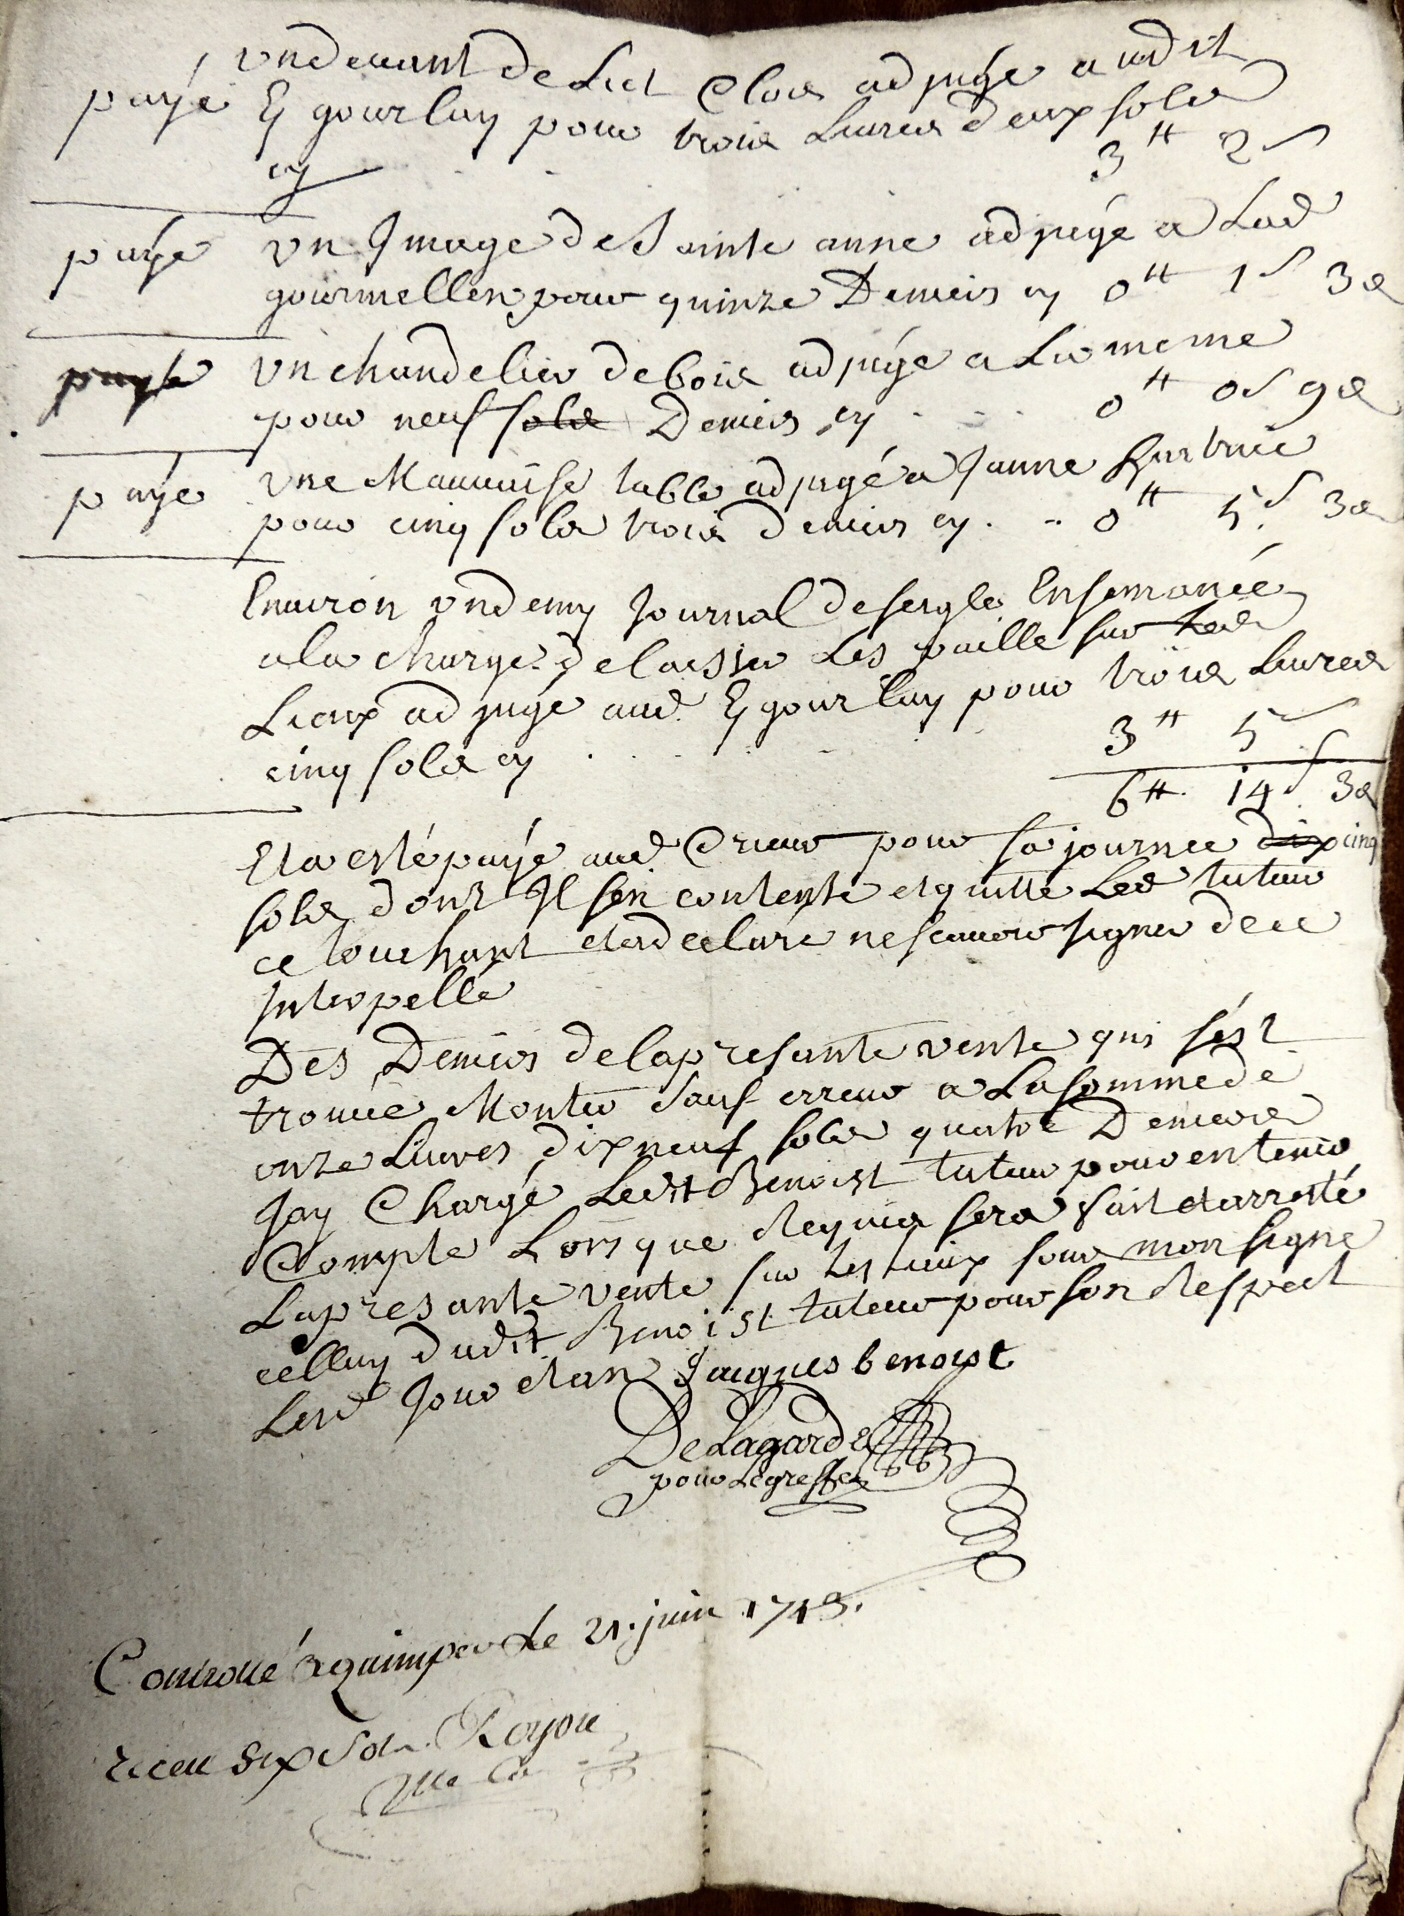 payé undevant de Lict Clos adjugé audit
Y gourlay pour trois Livres deux sols
cy 3# 2s
payé un Jmage de Sainte anne adjugé a Lad
gourmellen pour quinze Deniers cy 0# 1s 3d
payé un chandelier debois adjugé a La meme
pour neuf sols Deniers cy 0# 0s 9d
payé une Mauvaise table adjugé a Janne
pour cinq sols trois deniers cy 0# 5s 3d
Environ undemy Journal de segle Ensemancée
ala charge delaisser Les paille sur les
Lieux adjugé aud Y gourlay pour trois Livres
cinq sols cy 3# 5s
6# 14s 3d
Eta esté payé aud Crieur pour sa journée dix cinq
sols dont Jl sen contente et quitte Led tuteur
ce touchant et a declaré ne scavoir signer dece
Jnterpellé
Des Deniers de la presante vente qui sést
trouvée Monter Sauf erreur a La somme de
onze Livres dix neuf sols quatre Deniers
Jay Chargé Ledit Benoist tuteur pour en tenir
Compte Lorsque Requis sera fait et arresté
La presante vente sur les lieux sous mon signe
celluy dudit Benoist tuteur pour son Respect
Lesd Jour et an Jacques benoist
DeLagarde
pour Le greffe
Controllé a quimper Le 21. juin 1743.
receu six Sols Royou